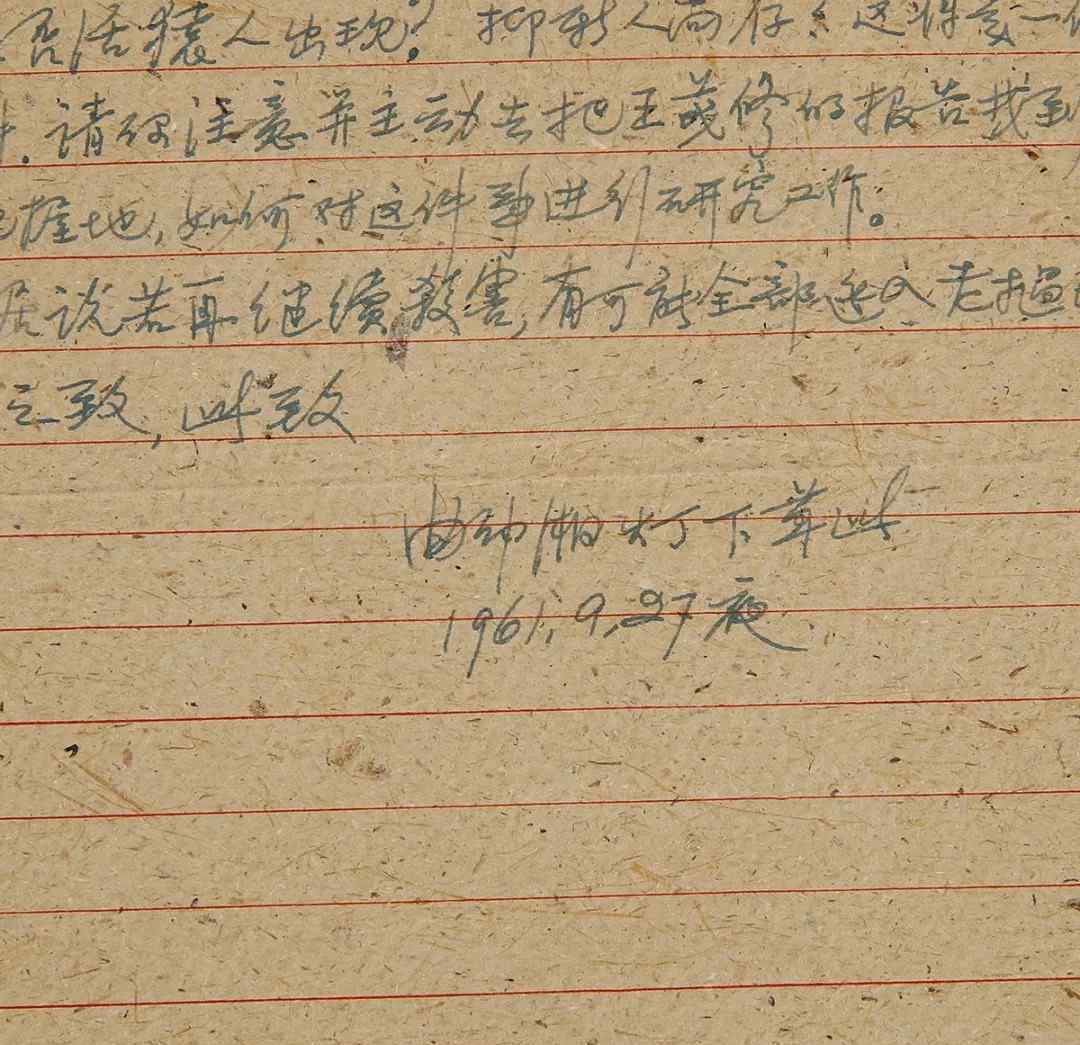 否活猿人出现? 抑新人尚存;这将是一
请礽注意并主动去把王茂修的报告找到
握地,如何对这件事进行研究工作。
说若再继续殺害,有可能全部迁入老挝
之致,此致
曲 灯下草此
1961,9,27夜